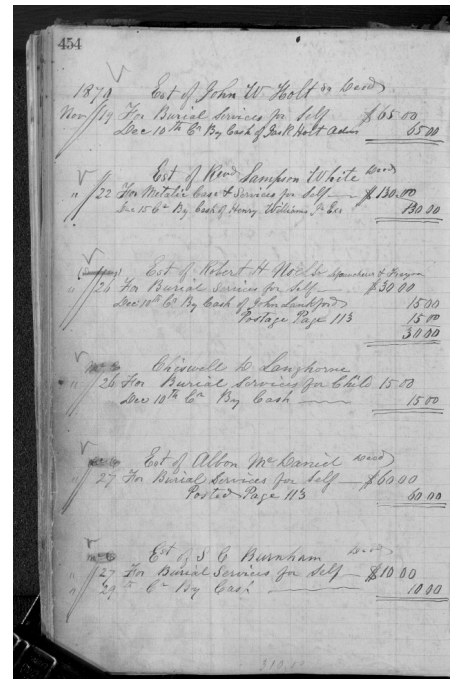 454
Est of John W Holt Decd
Nov 19 For Burial Services for Self $65.00
Dec 10th Cr By Cash of Jas R Holt Adm 65 00
Est of Revd Sampson White Decd
" 22 For Metalic Case & Services for Self $130.00
Dec 15 Cr By Cash of Henry Williams Jr Exc 130 00
Est of Robert H
" 26 For Burial Services for Self $30 00
Dec 10th Cr By Cash of John Lankford 15 00
Postage Page 113 15 00
30 00
Chiswell Langhorne
" 26 For Burial Services for Child 15 00
Dec 10th Cr By Cash 15 00
Est of Albon McDaniel Decd
" 27 For Burial Services for Self $60 00
Posted Page 113 60.00
Est of S C Burnham Decd
" 27 For Burial Services for Self $10 00
" 29 Cr By Cash 10 00